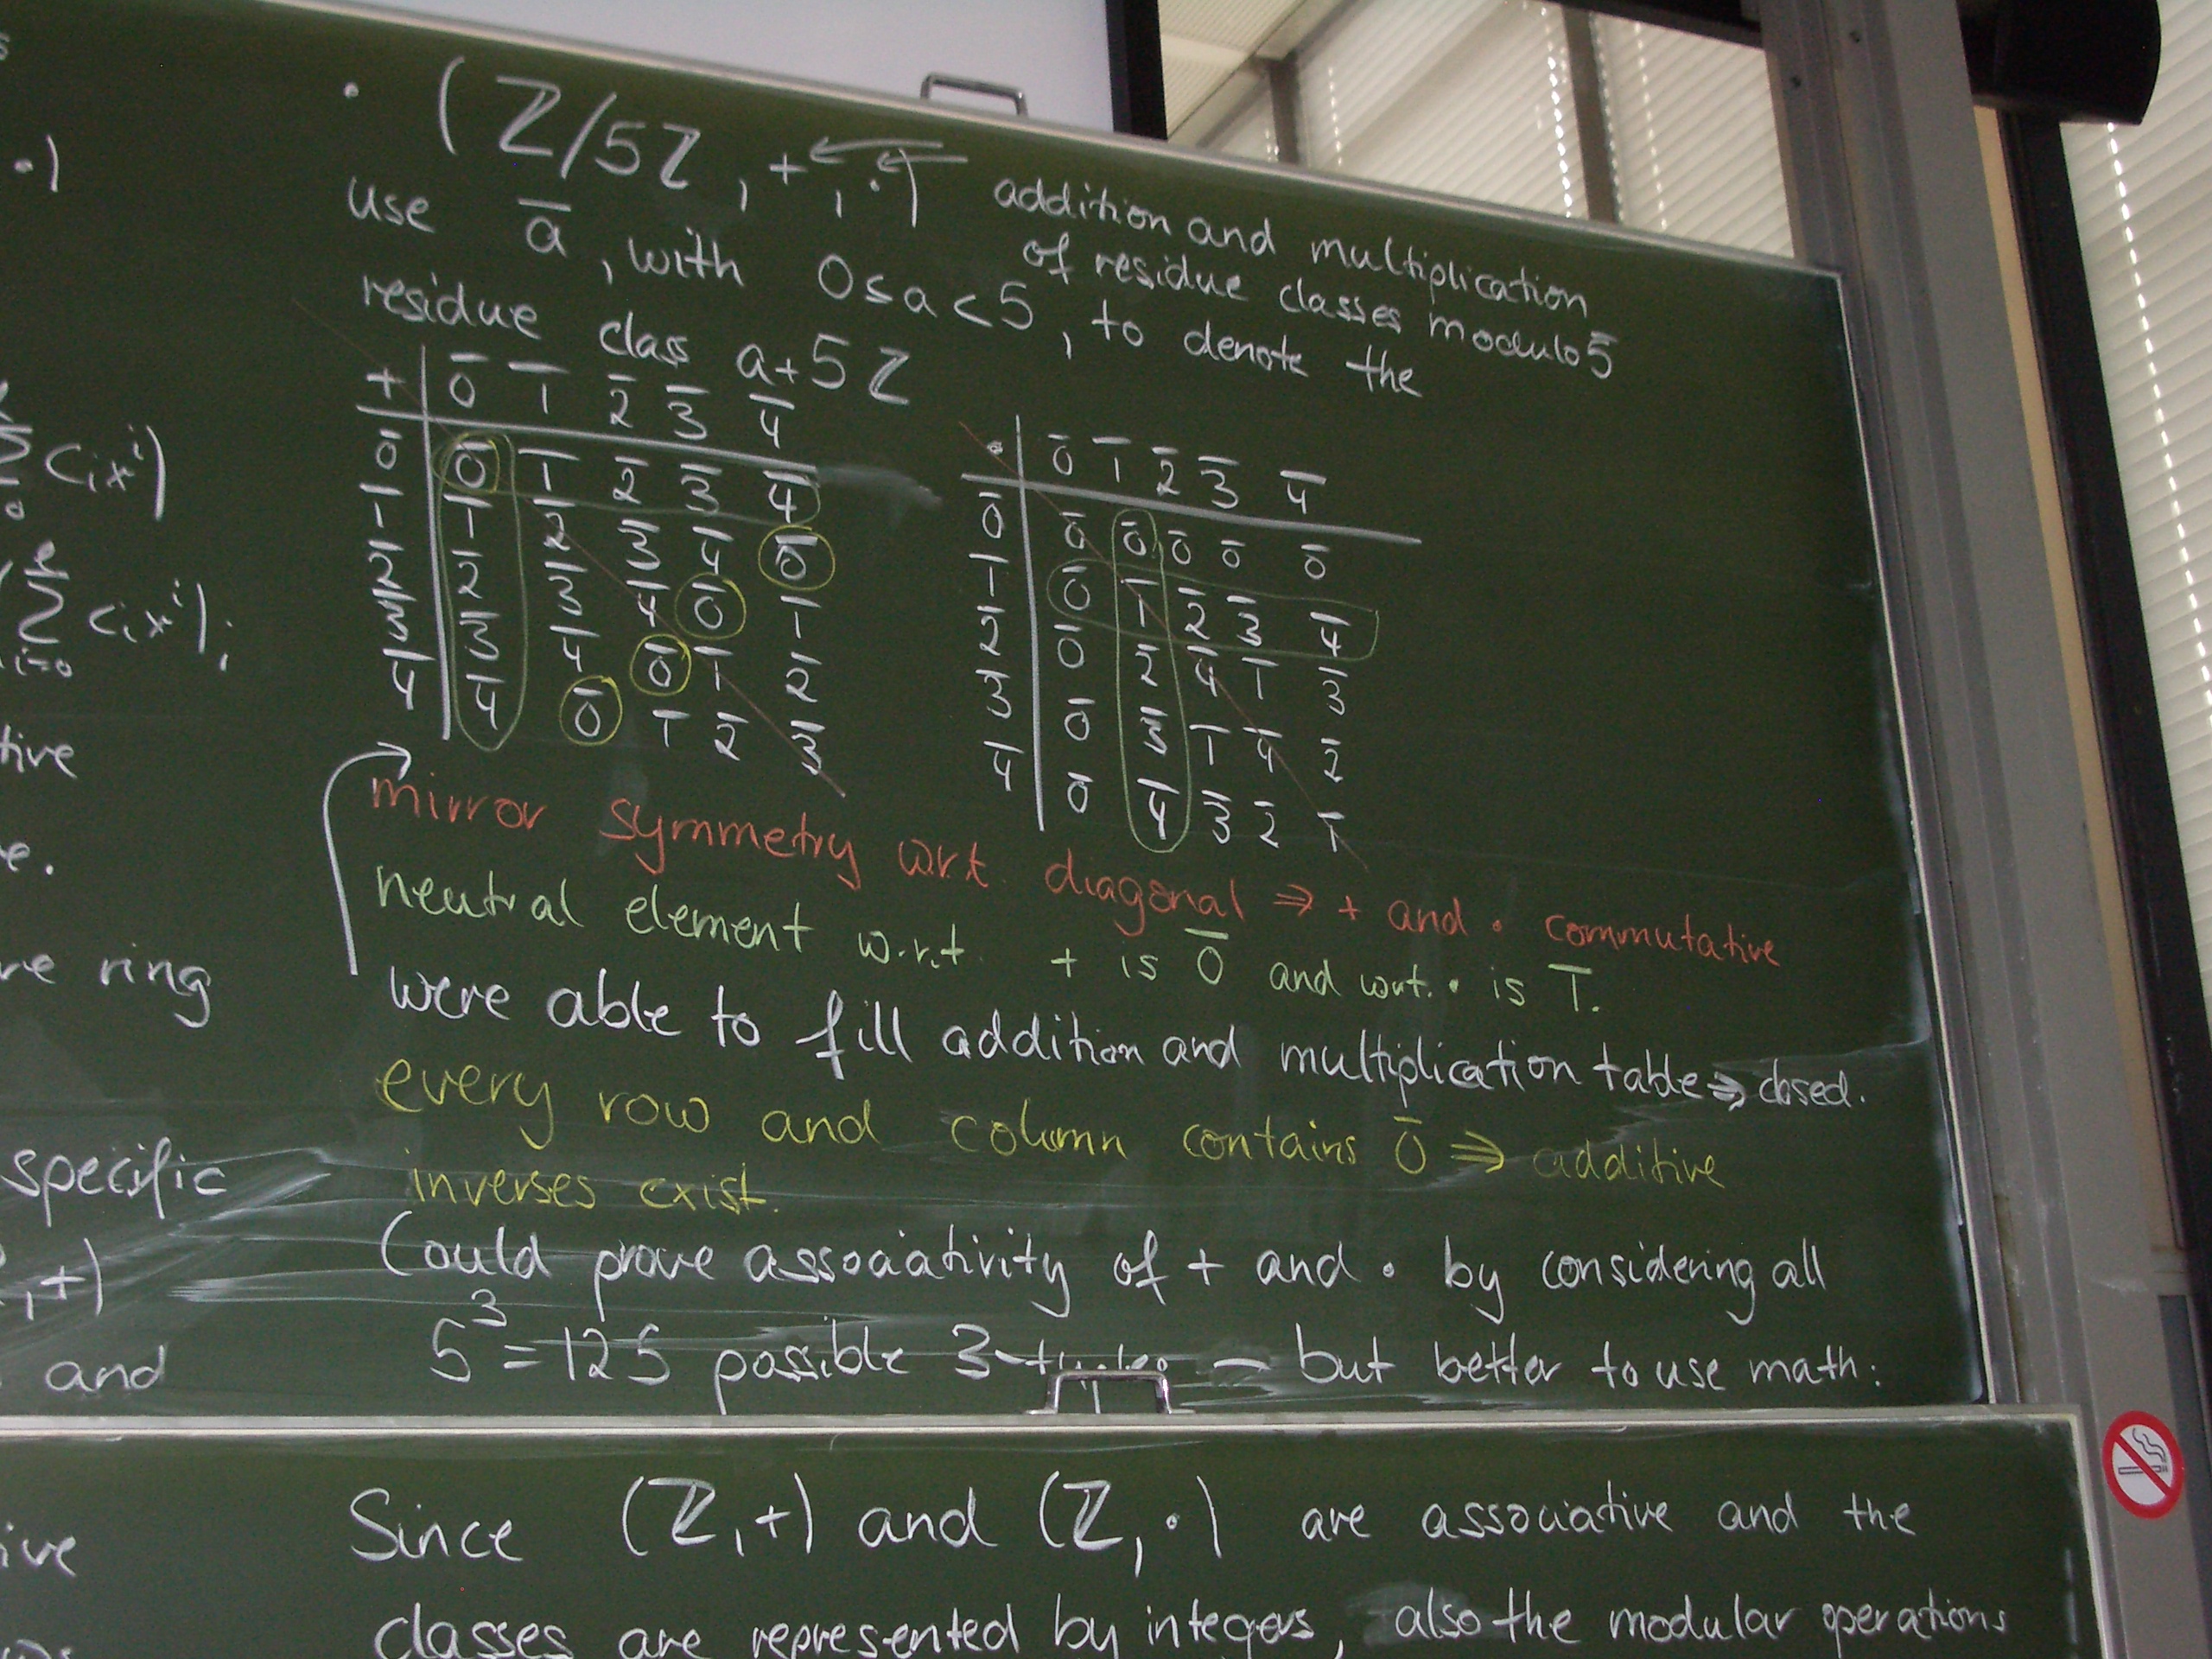 s
· (ℤ/5ℤ, +, ·)
addition and multiplication
of residue classes modulo 5
use a̅, with 0≤a<5, to denote the
residue class a+5ℤ
+ 0̅ 1̅ 2̅ 3̅ 4̅
0̅ 0̅ 1̅ 2̅ 3̅ 4̅
1̅ 1̅ 2̅ 3̅ 4̅ 0̅
2̅ 2̅ 3̅ 4̅ 0̅ 1̅
3̅ 3̅ 4̅ 0̅ 1̅ 2̅
4̅ 4̅ 0̅ 1̅ 2̅ 3̅
· 0̅ 1̅ 2̅ 3̅ 4̅
0̅ 0̅ 0̅ 0̅ 0̅ 0̅
1̅ 0̅ 1̅ 2̅ 3̅ 4̅
2̅ 0̅ 2̅ 4̅ 1̅ 3̅
3̅ 0̅ 3̅ 1̅ 4̅ 2̅
4̅ 0̅ 4̅ 3̅ 2̅ 1̅
mirror symmetry w.r.t. diagonal ⇒ + and · commutative
neutral element w.r.t. + is 0̅ and w.r.t. · is 1̅.
were able to fill addition and multiplication table ⇒ closed.
every row and column contains 0̅ ⇒ additive
inverses exist.
Could prove associativity of + and · by considering all
5³=125 possible 3- – but better to use math:
Since (ℤ,+) and (ℤ,·) are associative and the
classes are represented by integers, also the modular operations
·)
cᵢxⁱ)
Σ cᵢxⁱ);
i=0
tive
e.
re ring
specific
,+)
and
ive